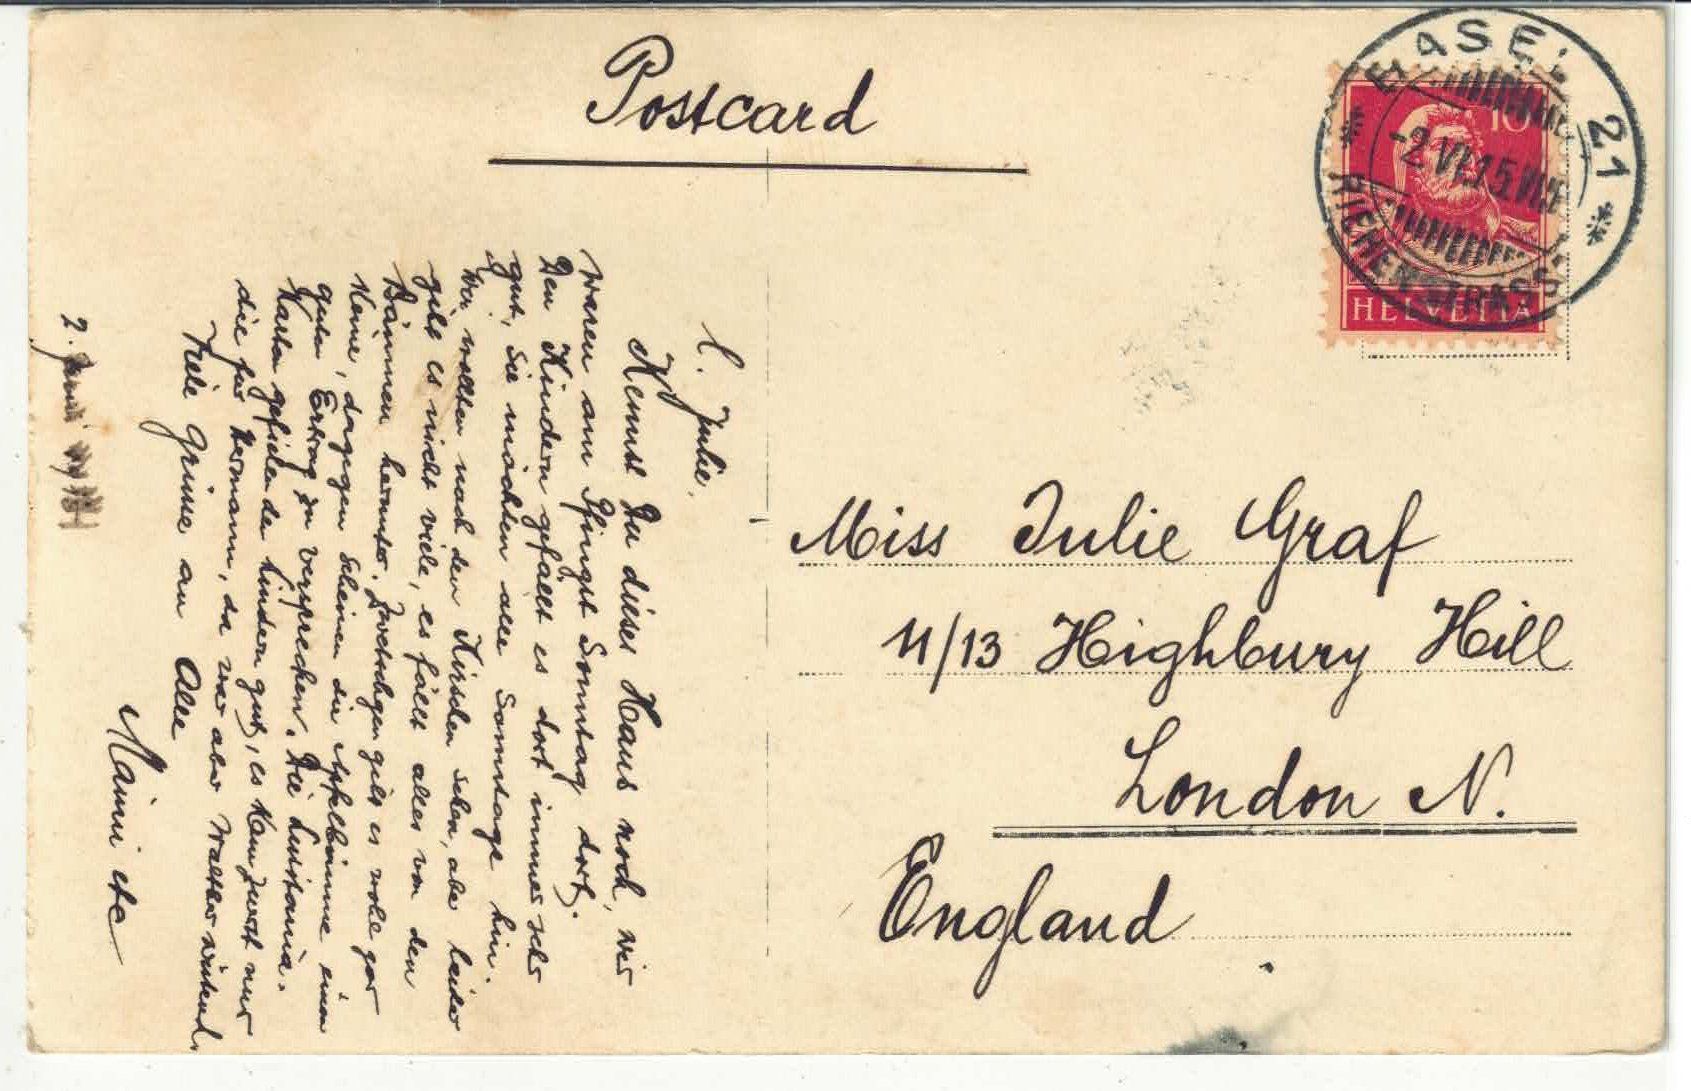 Postcard
BASEL 21
-2.VI.15.VIII
RIEHENSTRASSE
10
HELVETIA
Miss Julie Graf
11/13 Highbury Hill
London N.
England
L. Julie.
Kennst Du dieses Haus noch, wir
waren am Pfingst Sonntag dort.
Den Kindern gefällt es dort immer sehr
gut, sie möchten alle Sonntage hin.
Wir wollten nach den Kirschen sehen, aber leider
gibt es nicht viele, es fällt alles von den
Bäumen herunter. Zwetschgen gibt es wohl gar
keine, dagegen scheinen die Apfelbäume einen
guten Ertrag zu versprechen. Die Lusitania.
Karten gefielen den Kindern gut, es kam zwar nur
die für Hermann, da war aber Walther wütend,
Viele Grüsse an Alle
Mimi etc
2. Juni